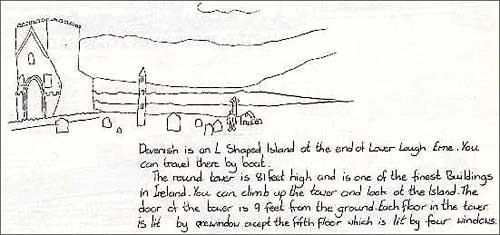 Devenish is an L Shaped Island at the end of Lower Lough Erne. You
can travel there by boat.
The round tower is 81 feet high and is one of the finest Buildings
in Ireland. You can climb up the tower and look at the Island. The
door of the tower is 9 feet from the ground. Each floor in the tower
is lit by onewindow except the fifth floor which is lit by four windows.